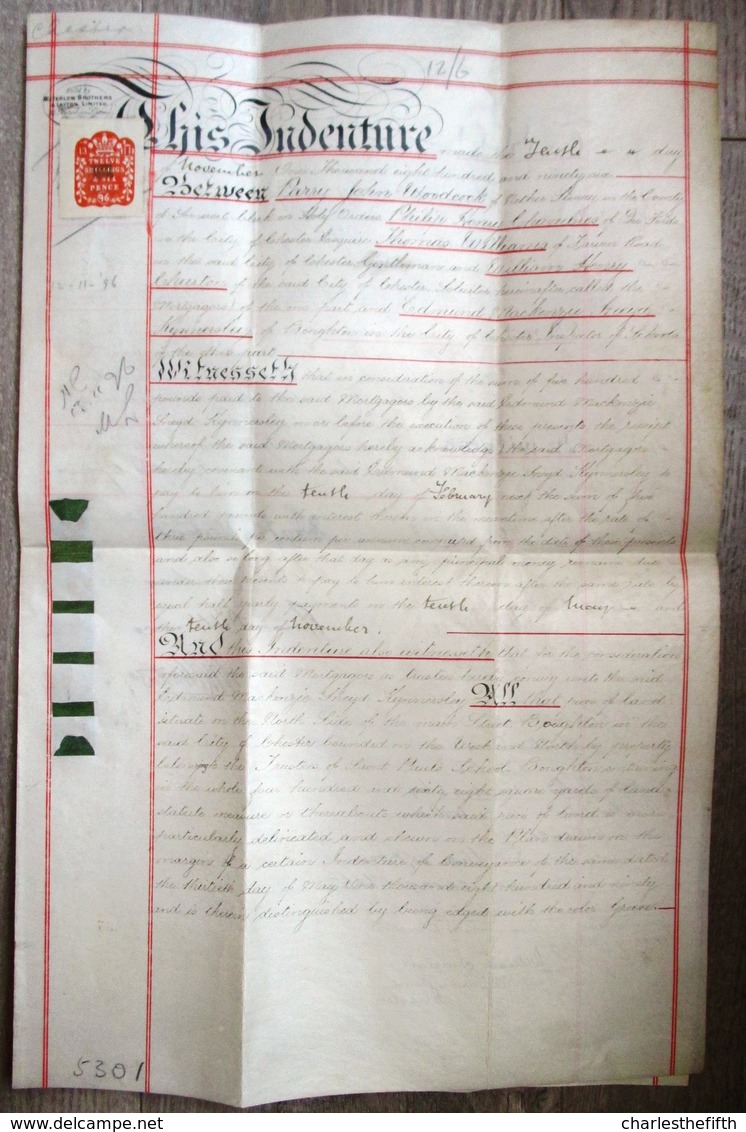 12/6
WATERLOW BROTHERS
& LAYTON, LIMITED.
This Indenture made the Tenth day
of November One thousand eight hundred and ninety six
TWELVE
SHILLINGS
& SIX
PENCE
96
Between Parry John Woodcock of in the County
of Clerk in Holy Orders Philip Chambres of
in the City of Chester Esquire Thomas Williams of Road
in the said City of Chester Gentleman and William Henry
Churton of the said City of Chester Solicitor hereinafter called the
Mortgagors of the one part and Edmund Mackenzie Sneyd
Kynnersley of Boughton in the City of Chester Inspector of Schools
of the other part
-11-'96
Witnesseth that in consideration of the sum of five hundred
pounds paid to the said Mortgagors by the said Edmund Mackenzie
Sneyd Kynnersley on or before the execution of these presents the receipt
whereof the said Mortgagors hereby acknowledge the said Mortgagors
hereby covenant with the said Edmund Mackenzie Sneyd Kynnersley to
pay to him on the tenth day of February next the sum of five
hundred pounds with interest thereon in the meantime after the rate of
three pounds per centum per annum computed from the date of these presents
and also so long after that day as any principal money remains due
under these presents to pay to him interest thereon after the same rate by
equal half yearly payments on the tenth day of May and
the tenth day of November.
And this Indenture also witnesseth that for the consideration
aforesaid the said Mortgagors as trustees hereby convey unto the said
Edmund Mackenzie Sneyd Kynnersley All that piece of land
situate on the North Side of the main Street Boughton in the
said City of Chester bounded on the West and North by property
belonging to the Trustees of Saint Pauls School Boughton containing
in the whole four hundred and sixty eight square yards of land
statute measure or thereabouts which said piece of land is more
particularly delineated and shewn on the Plan drawn on the
margin of a certain Indenture of Conveyance of the same dated
the thirtieth day of May One thousand eight hundred and ninety
and is therein distinguished by being edged with the color Green
5301
charlesthefifth